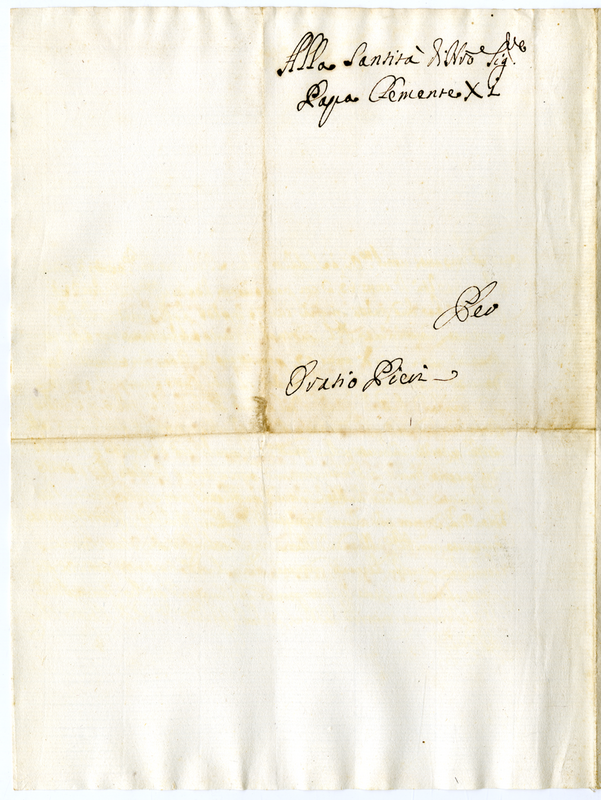 Alla Santità di Nro Sigre
Papa Clemente XI
Per
Oratio Pieri